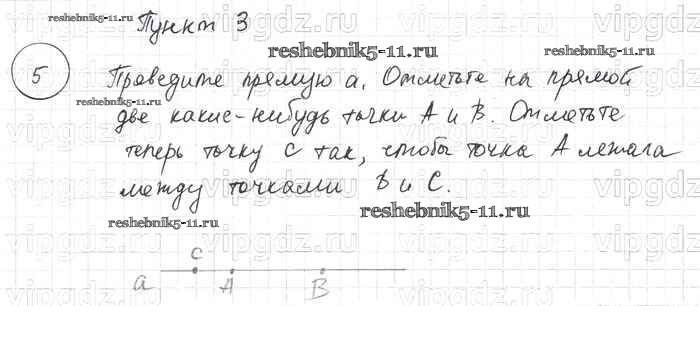 reshebnik5-11.ru Пункт 3
reshebnik5-11.ru reshebnik5-11.ru
5 Проведите прямую a. Отметьте на прямой
reshebnik5-11.ru
две какие-нибудь точки A и B. Отметьте
теперь точку C так, чтобы точка A лежала
между точками B и C.
reshebnik5-11.ru
reshebnik5-11.ru
vipgdz.ru
C
a A B